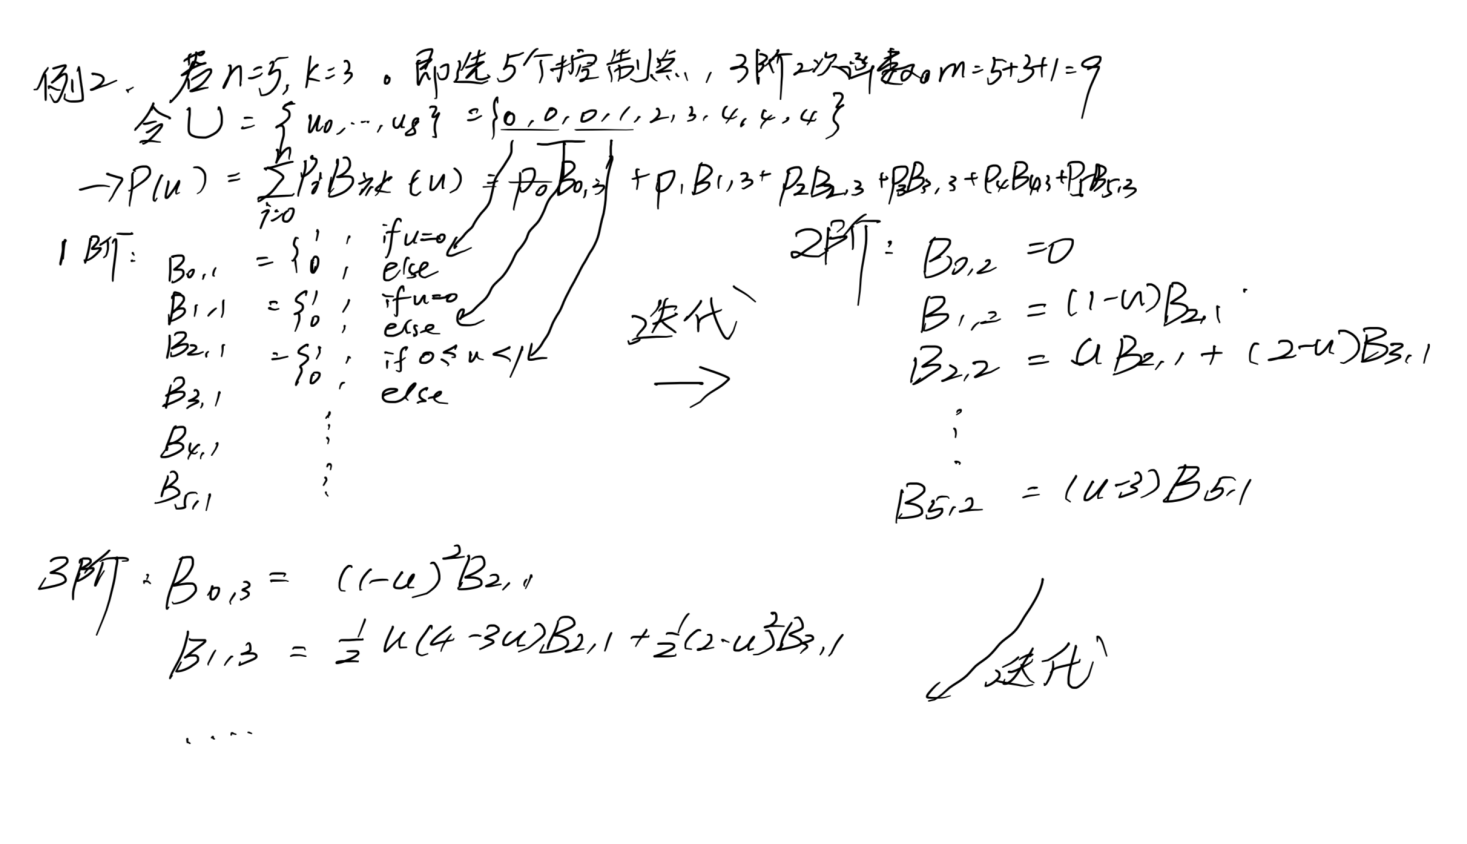 例2. 若n=5, k=3。即选5个控制点, 3阶2次函数。m=5+3+1=9
令U = {u₀,…,u₈} = {0,0,0,1,2,3,4,4,4}
→P(u) = Σ_{i=0}^{n} PᵢB_{i,k}(u) = P₀B₀,₃ + P₁B₁,₃ + P₂B₂,₃ + P₃B₃,₃ + P₄B₄,₃ + P₅B₅,₃
1阶:
B₀,₁ = { 1, if u=0
0, else
B₁,₁ = { 1, if u=0
0, else
B₂,₁ = { 1, if 0≤u<1
0, else
B₃,₁ ⋮
B₄,₁
B₅,₁ ⋮
迭代
→
2阶: B₀,₂ = 0
B₁,₂ = (1-u)B₂,₁
B₂,₂ = uB₂,₁ + (2-u)B₃,₁
⋮
B₅,₂ = (u-3)B₅,₁
迭代
3阶: B₀,₃ = (1-u)²B₂,₁
B₁,₃ = ½ u(4-3u)B₂,₁ + ½(2-u)²B₃,₁
....